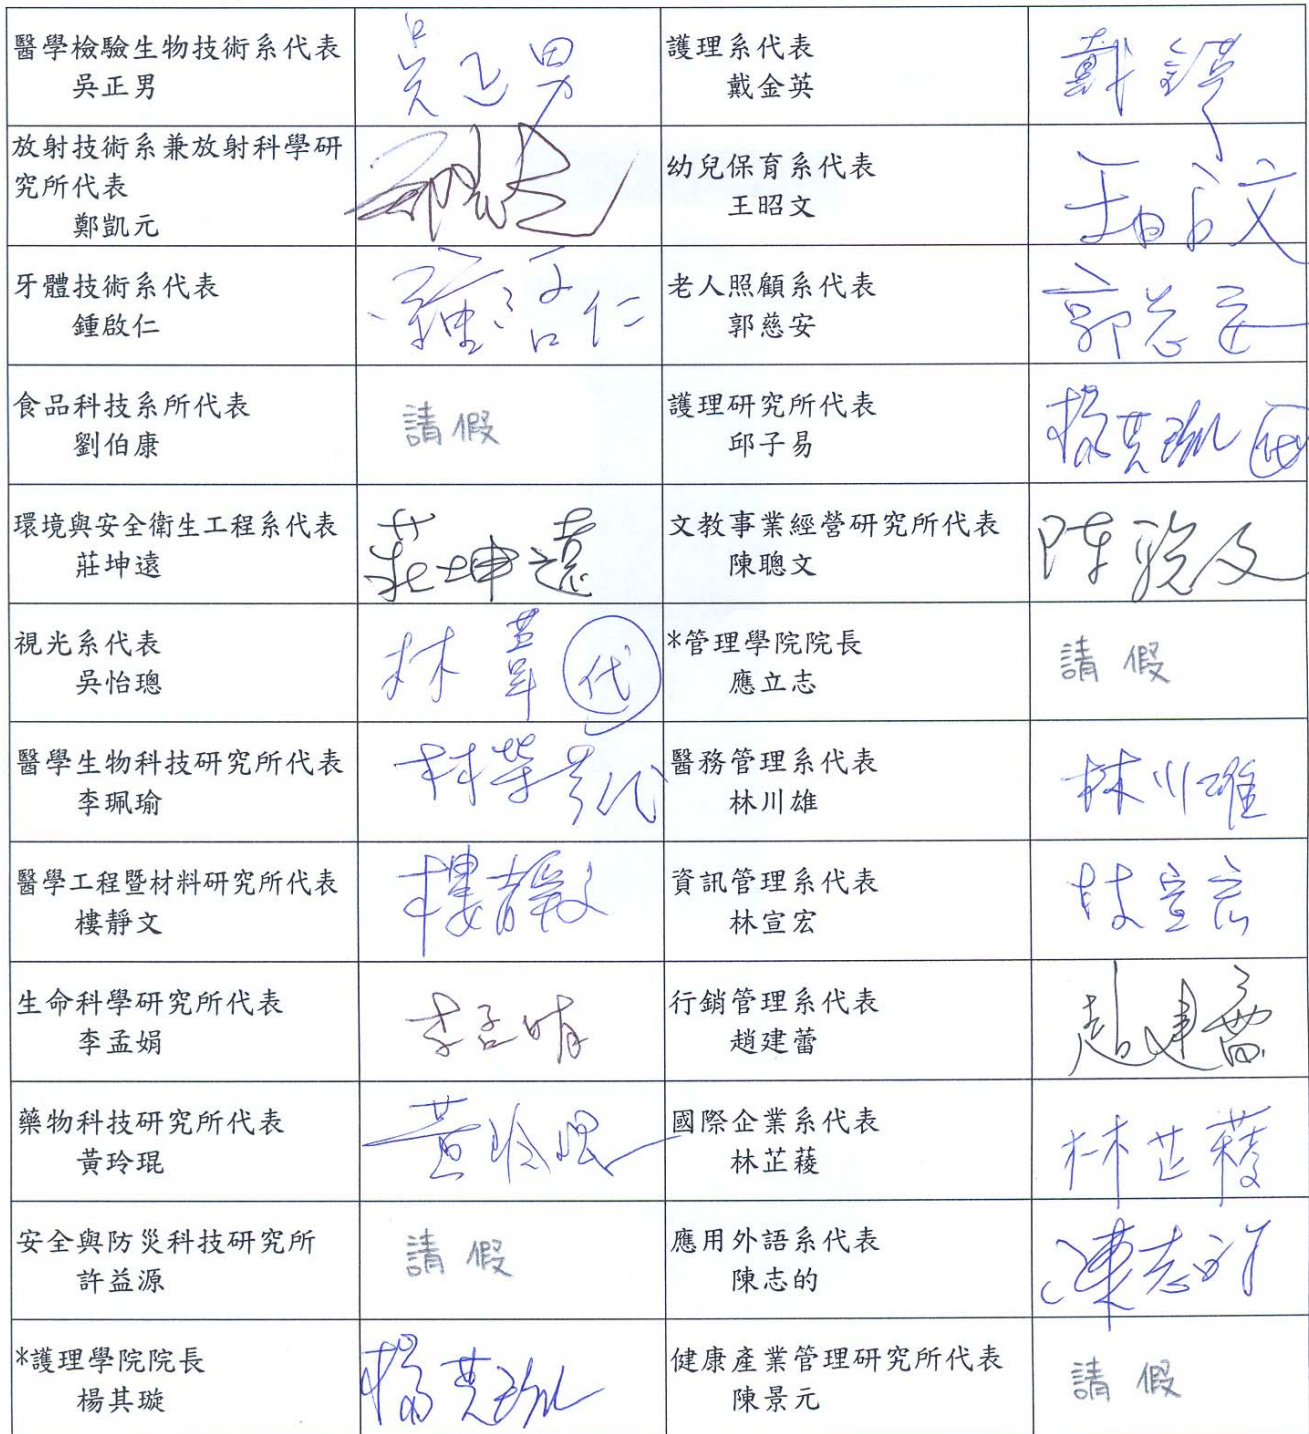 醫學檢驗生物技術系代表
吳正男
吳正男
護理系代表
戴金英
戴金英
放射技術系兼放射科學研
究所代表
鄭凱元
幼兒保育系代表
王昭文
王昭文
牙體技術系代表
鍾啟仁
鍾啟仁
老人照顧系代表
郭慈安
郭慈安
食品科技系所代表
劉伯康
請假
護理研究所代表
邱子易
楊其璇 代
環境與安全衛生工程系代表
莊坤遠
莊坤遠
文教事業經營研究所代表
陳聰文
陳聰文
視光系代表
吳怡璁
代
*管理學院院長
應立志
請假
醫學生物科技研究所代表
李珮瑜
醫務管理系代表
林川雄
林川雄
醫學工程暨材料研究所代表
樓靜文
樓靜文
資訊管理系代表
林宣宏
林宣宏
生命科學研究所代表
李孟娟
李孟娟
行銷管理系代表
趙建蕾
趙建蕾
藥物科技研究所代表
黃玲琨
黃玲琨
國際企業系代表
林芷薐
林芷薐
安全與防災科技研究所
許益源
請假
應用外語系代表
陳志的
陳志的
*護理學院院長
楊其璇
楊其璇
健康產業管理研究所代表
陳景元
請假